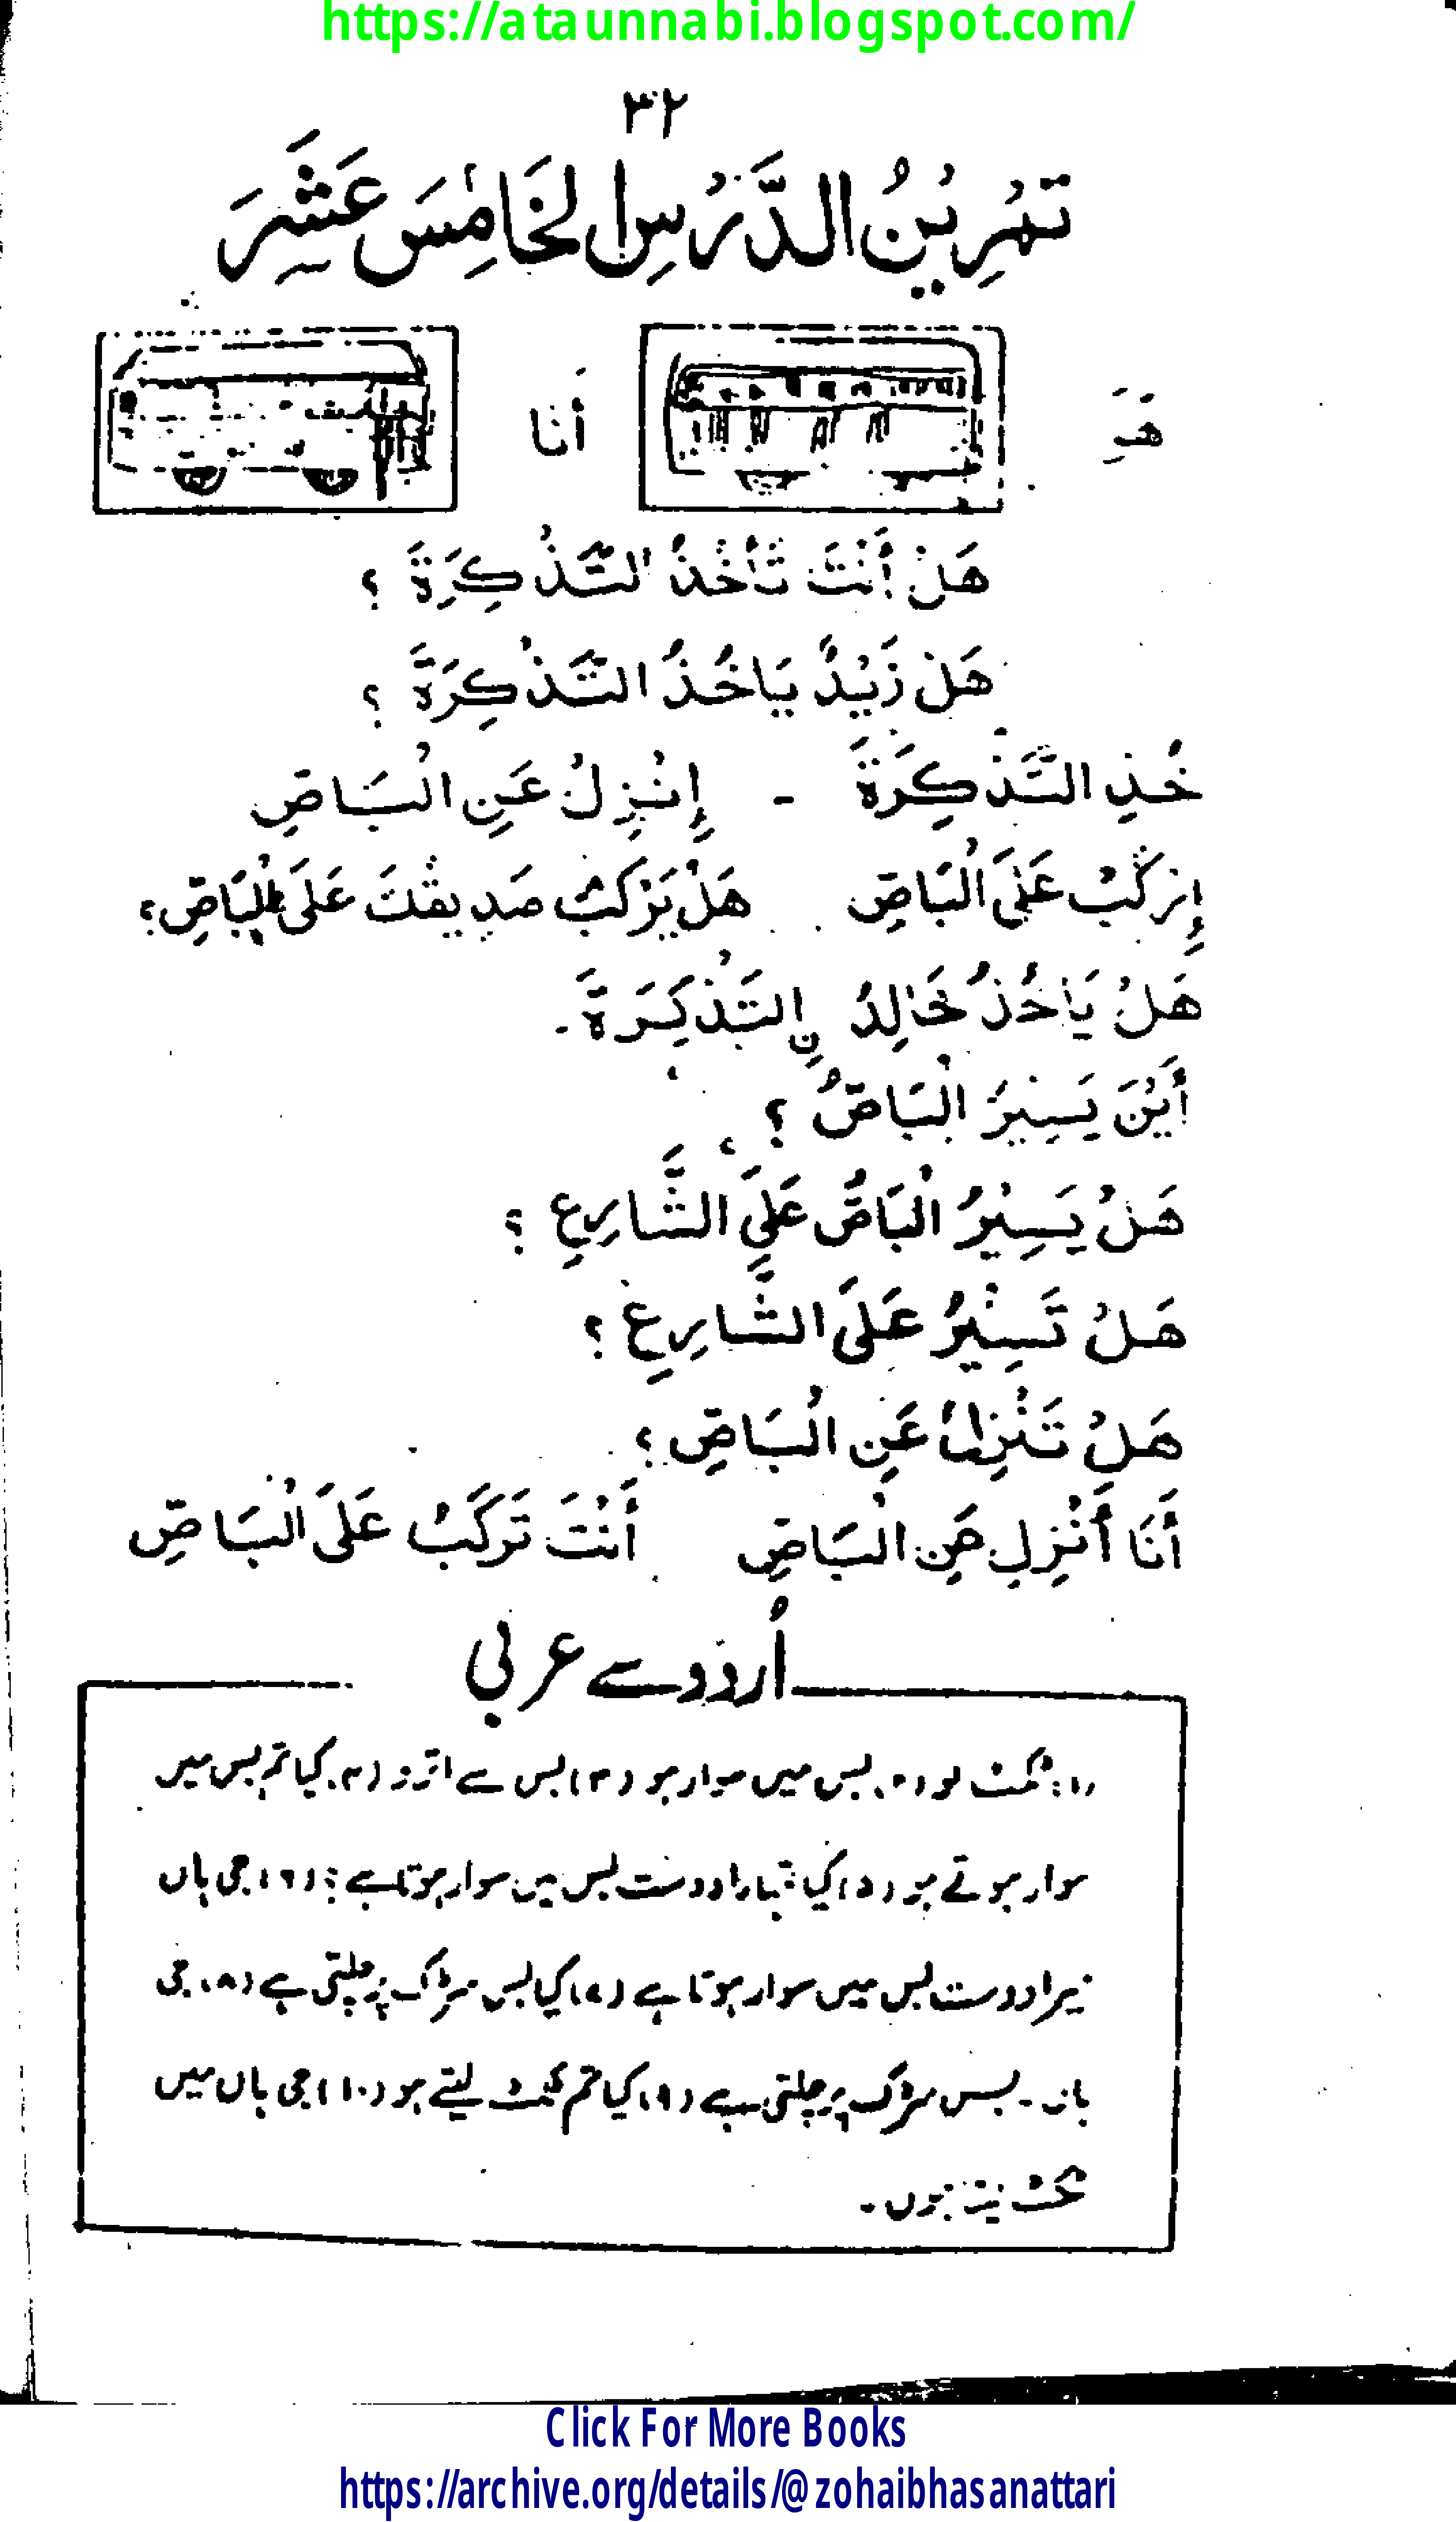 https://ataunnabi.blogspot.com/
٣٢
تَمْرِيْنُ الدَّرْسِ الْخَامِسَ عَشَرَ
أَنا
هَلْ أَنْتَ تَأْخُذُ التَّذْكِرَةَ ؟
هَلْ زَيْدٌ يَاخُذُ التَّذْكِرَةَ ؟
خُذِ التَّذْكِرَةَ - إِنْزِلْ عَنِ الْبَاصِّ
إِرْكَبْ عَلَى الْبَاصِّ هَلْ يَرْكَبُ صَدِيقُكَ عَلَى الْبَاصِّ؟
هَلْ يَاخُذُ خَالِدُ نِ التَّذْكِرَةَ -
أَيْنَ يَسِيْرُ الْبَاصُّ ؟
هَلْ يَسِيْرُ الْبَاصُّ عَلَى الشَّارِعِ ؟
هَلْ تَسِيْرُ عَلَى الشَّارِعِ ؟
هَلْ تَنْزِلُ عَنِ الْبَاصِّ ؟
أَنَا أَنْزِلُ عَنِ الْبَاصِّ أَنْتَ تَرْكَبُ عَلَى الْبَاصِّ
اُردو سے عربی
(۱) ٹکٹ لو (۲) بس میں سوار ہو (۳) بس سے اترو (۴) کیا تم بس میں
سوار ہوتے ہو (۵) کیا تمہارا دوست بس میں سوار ہوتا ہے ؟ (۶) جی ہاں
میرا دوست بس میں سوار ہوتا ہے (۷) کیا بس سڑک پر چلتی ہے (۸) جی
ہاں ۔ بس سڑک پر چلتی ہے (۹) کیا تم ٹکٹ لیتے ہو (۱۰) جی ہاں میں
ٹکٹ لیتا ہوں ۔
Click For More Books
https://archive.org/details/@zohaibhasanattari